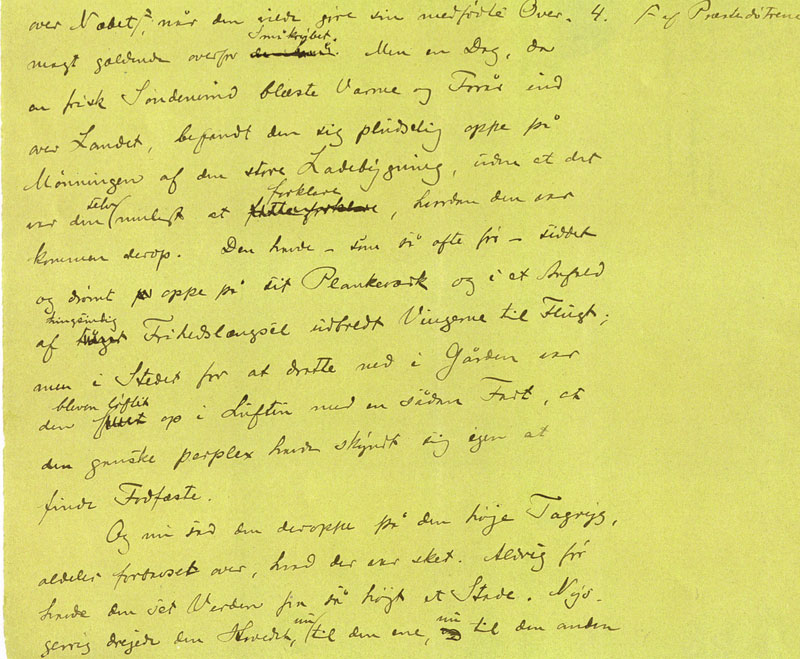 over Næbet ⌈, når den vilde give sin medfødte Over- 4. ⌈ af Præstedøtrene
magt gældende overfor Småkrybet. Men en Dag, da
en frisk Søndenvind blæste Varme og Forår ind
over Landet, befandt den sig pludselig oppe på
Mønningen af den store Ladebygning, uden at det
var den selv muligt at forklare, hvordan den var
kommen derop. Den havde – som så ofte før – siddet
og drømt oppe på sit Plankeværk og i et Anfald
af ungdommelig Frihedslængsel udbredt Vingerne til Flugt;
men i Stedet for at dratte ned i Gården var
den bleven løftet op i Luften med en sådan Fart, at
den ganske perplex havde skyndt sig igen at
finde Fodfæste.
Og nu sad den deroppe på den høje Tagryg,
aldeles fortumlet over, hvad der var sket. Aldrig før
havde den set Verden fra så højt et Stade. Nys-
gerrig drejede den Hovedet, nu til den ene, nu til den anden